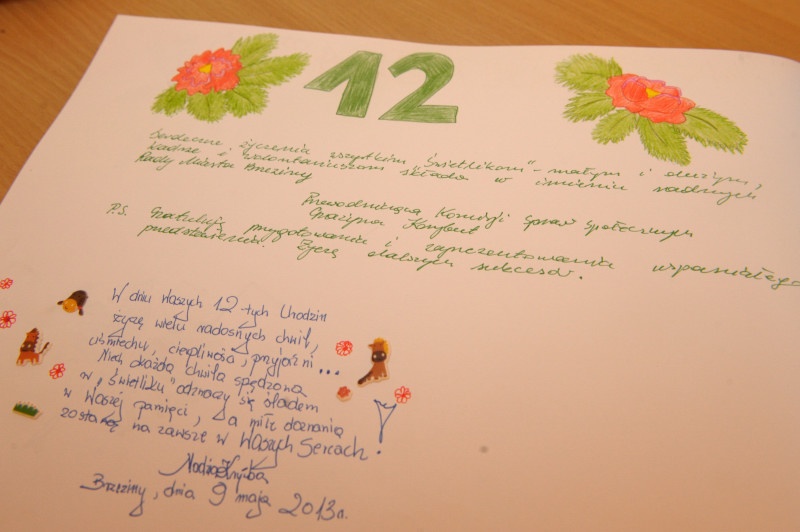 12
Serdeczne życzenia wszystkim "Świetlikom" - małym i dużym,
kadrze i wolontariuszom składa w imieniu radnych
Rady Miasta Brzeziny
Przewodnicząca Komisji Spraw Społecznych
Grażyna
P.S. Gratuluję przygotowania i zaprezentowania wspaniałego
przedstawienia. Życzę dalszych sukcesów.
W dniu Waszych 12-tych Urodzin
życzę wielu radosnych chwil,
uśmiechu, cierpliwości, przyjaźni...
Niech każda chwila spędzona
w "Świetliku" odznaczy się śladem
w Waszej pamięci, a miłe doznania
zostaną na zawsze w Waszych Sercach!
Brzeziny, dnia 9 maja 2013r.